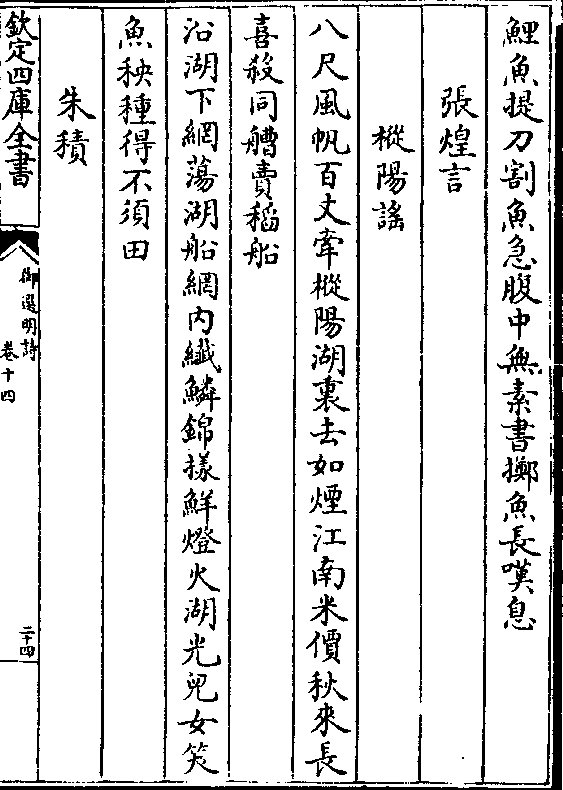 鯉魚提刀割魚急腹中無素書擲魚長嘆息
張煌言
樅陽謠
八尺風帆百丈牽樅陽湖裏去如煙江南米價秋來長
喜殺同艚賣稻船
沿湖下網蕩湖船網内纖鱗錦樣鮮燈火湖光兒女笑
魚秧種得不須田
朱積
欽定四庫全書
御選明詩
卷十四
二十四